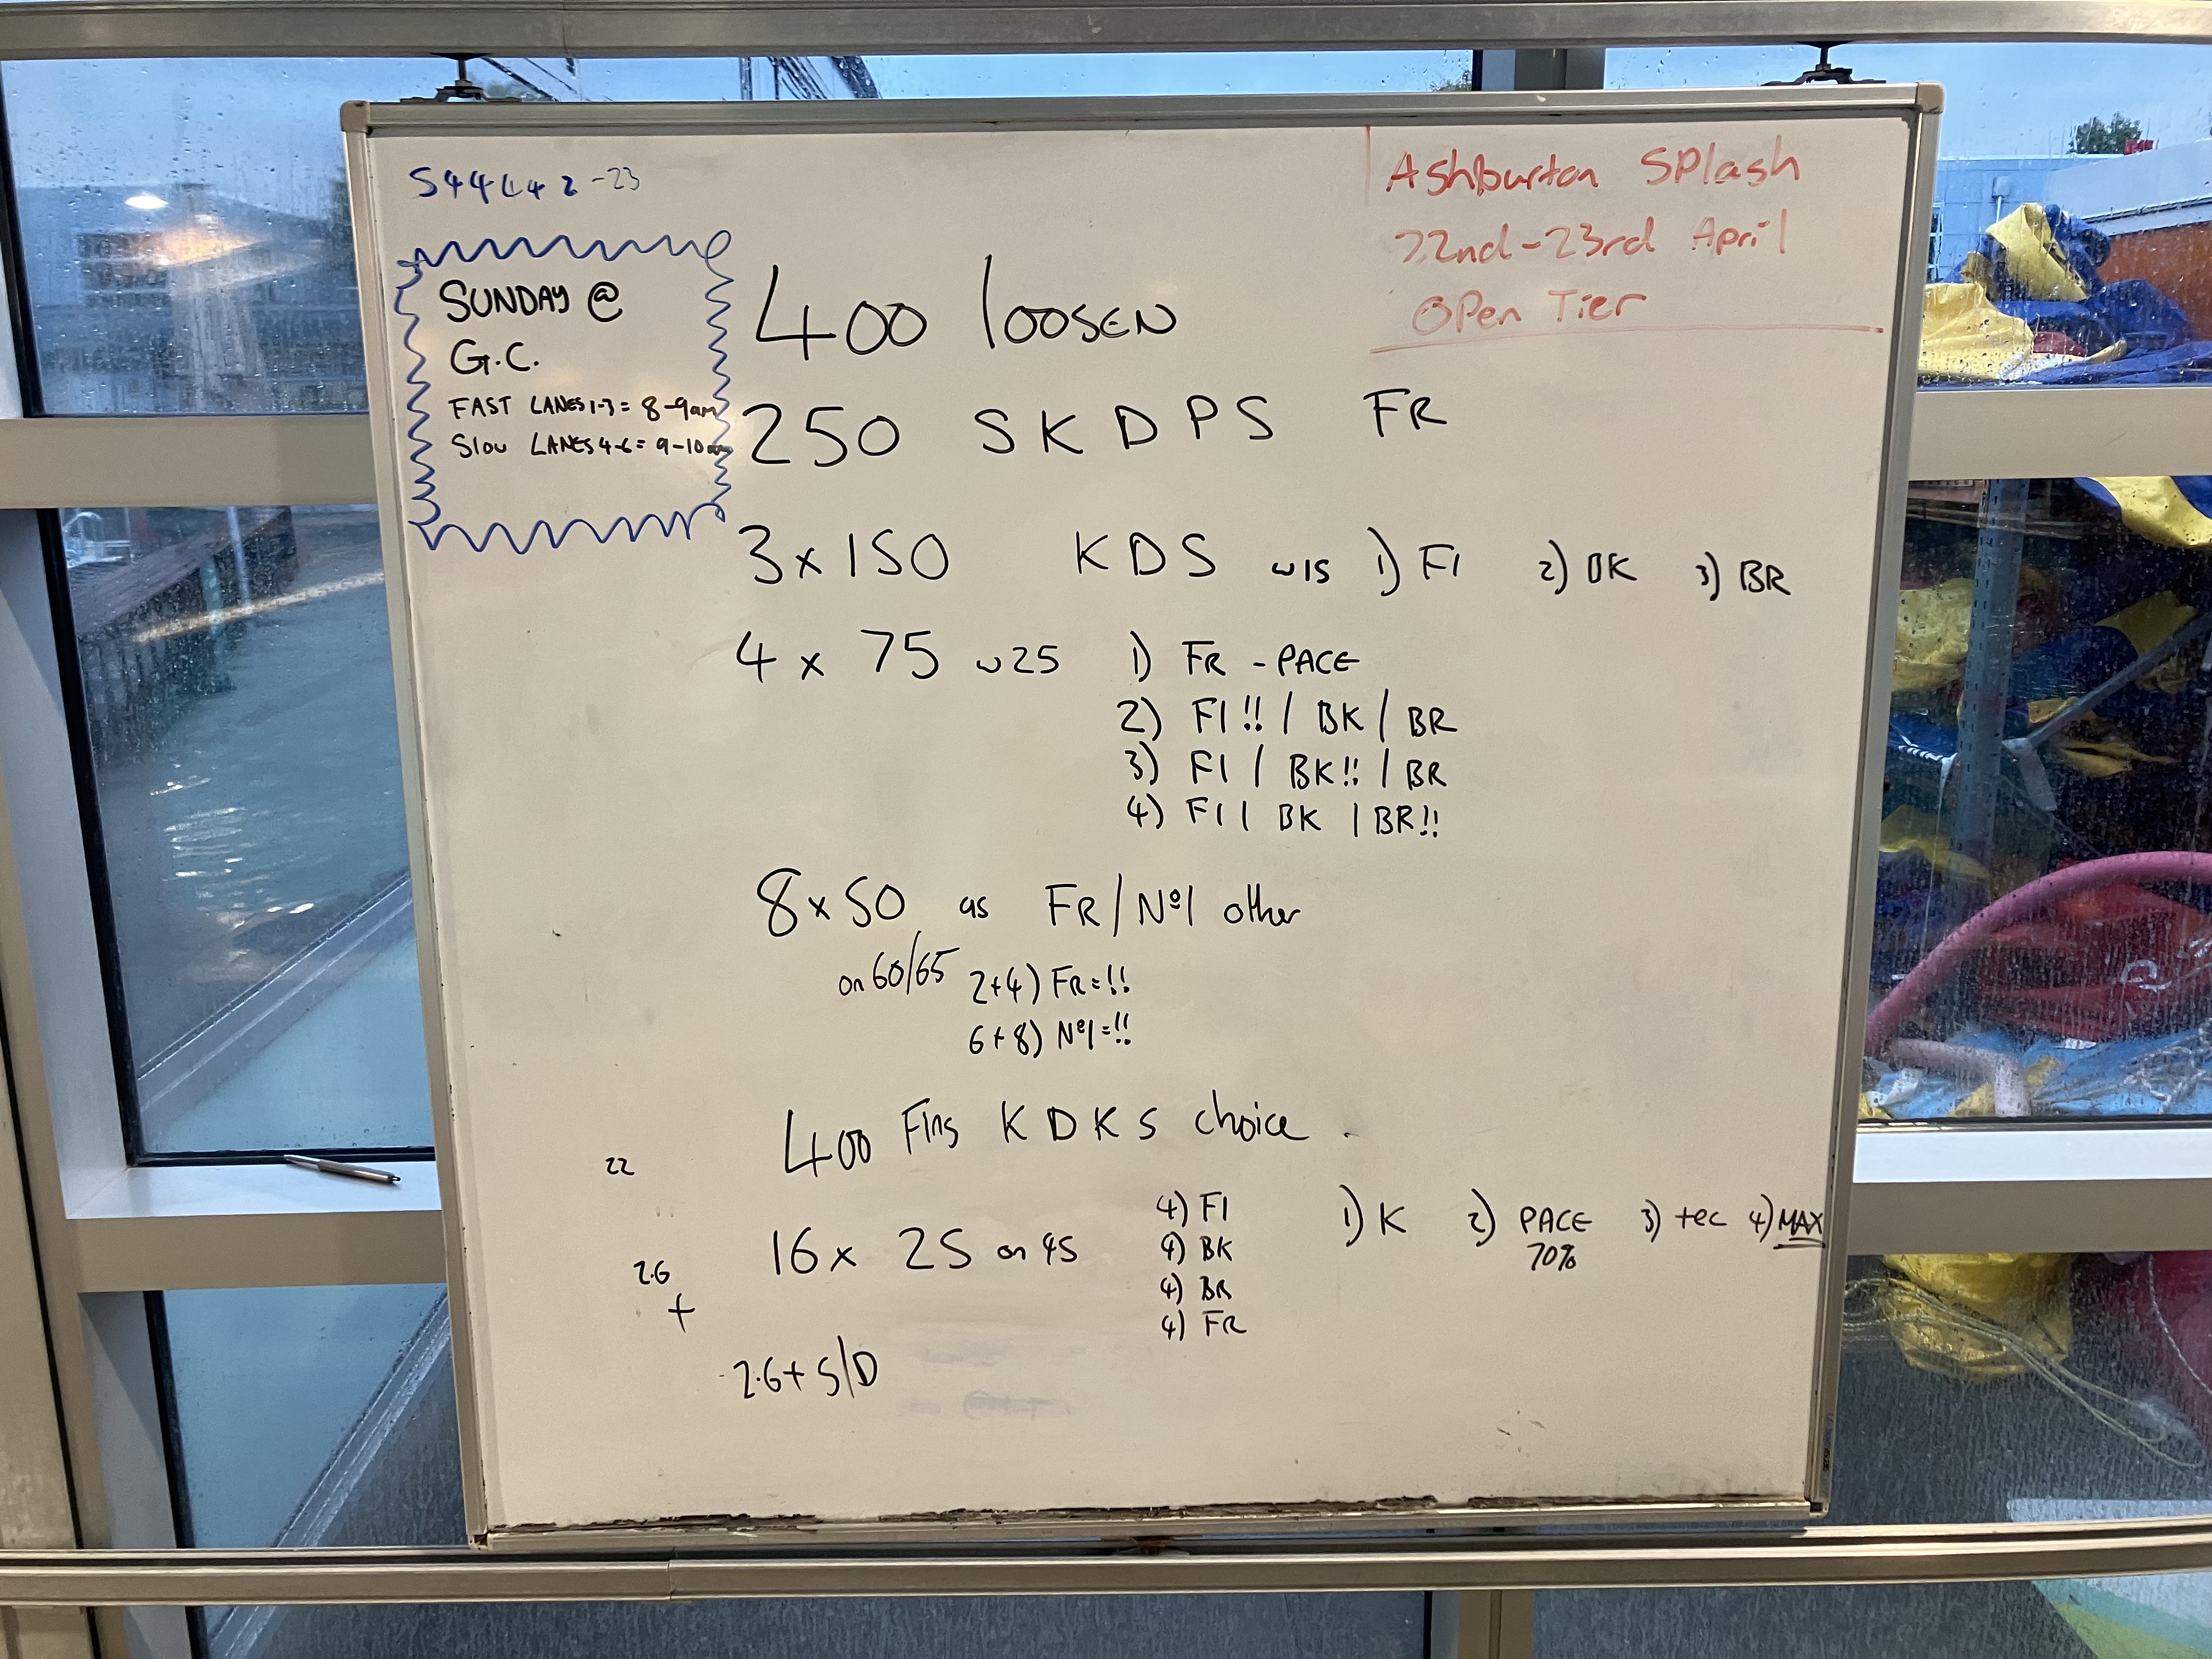 Ashburton Splash
22nd-23rd April
Open Tier
SUNDAY @
G.C.
FAST LANES 1-3 = 8-9am
Slow LANES 4-6 = 9-10am
400 loosen
250 SKDPS FR
3x150 KDS w15 1) FI 2) BK 3) BR
4 x 75 w25 1) FR - PACE
2) FI!! / BK / BR
3) FI / BK!! / BR
4) FI / BK / BR!!
8x50 as FR/Nº1 other
on 60/65 2+4) FR=!!
6+8) Nº1=!!
400 Fins KDKS choice
22
16x 25 on 45 4) FI 1) K 2) PACE 3) tec 4) MAX
70%
4) BK
4) BR
4) FR
2.6
+
2.6+ S/D